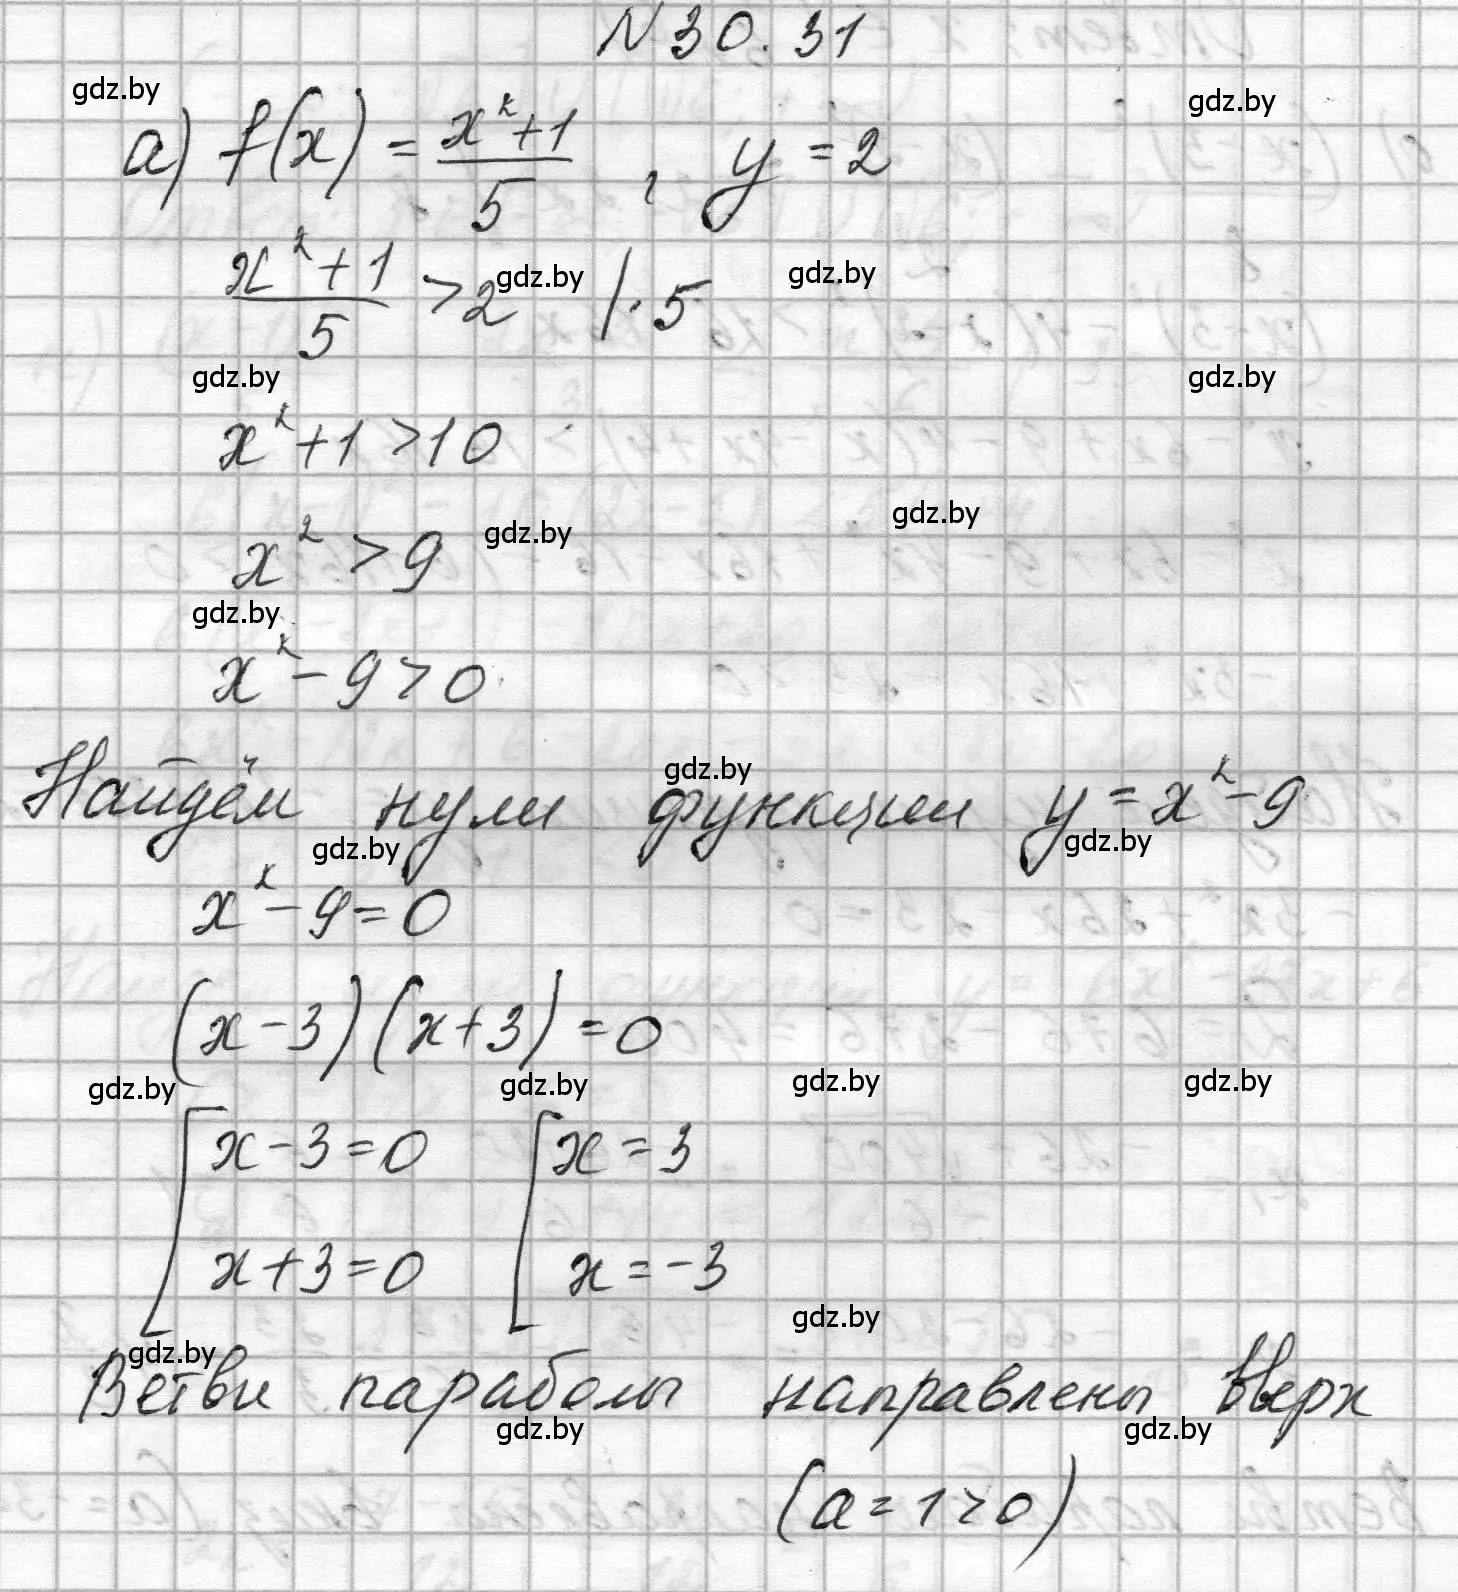 N 30.31
gdz.by
gdz.by
а) f(x) = (x²+1)/5 , y = 2
(x²+1)/5 > 2 |· 5
gdz.by
gdz.by
gdz.by
gdz.by
x²+1 > 10
gdz.by
x² > 9
gdz.by
gdz.by
x² - 9 > 0
gdz.by
Найдём нули функции y = x² - 9
gdz.by
gdz.by
x² - 9 = 0
(x - 3)(x + 3) = 0
gdz.by
gdz.by
gdz.by
gdz.by
[ x - 3 = 0 [ x = 3
x + 3 = 0 x = -3
gdz.by
gdz.by
Ветви параболы направлены вверх
gdz.by
gdz.by
(a = 1 > 0)